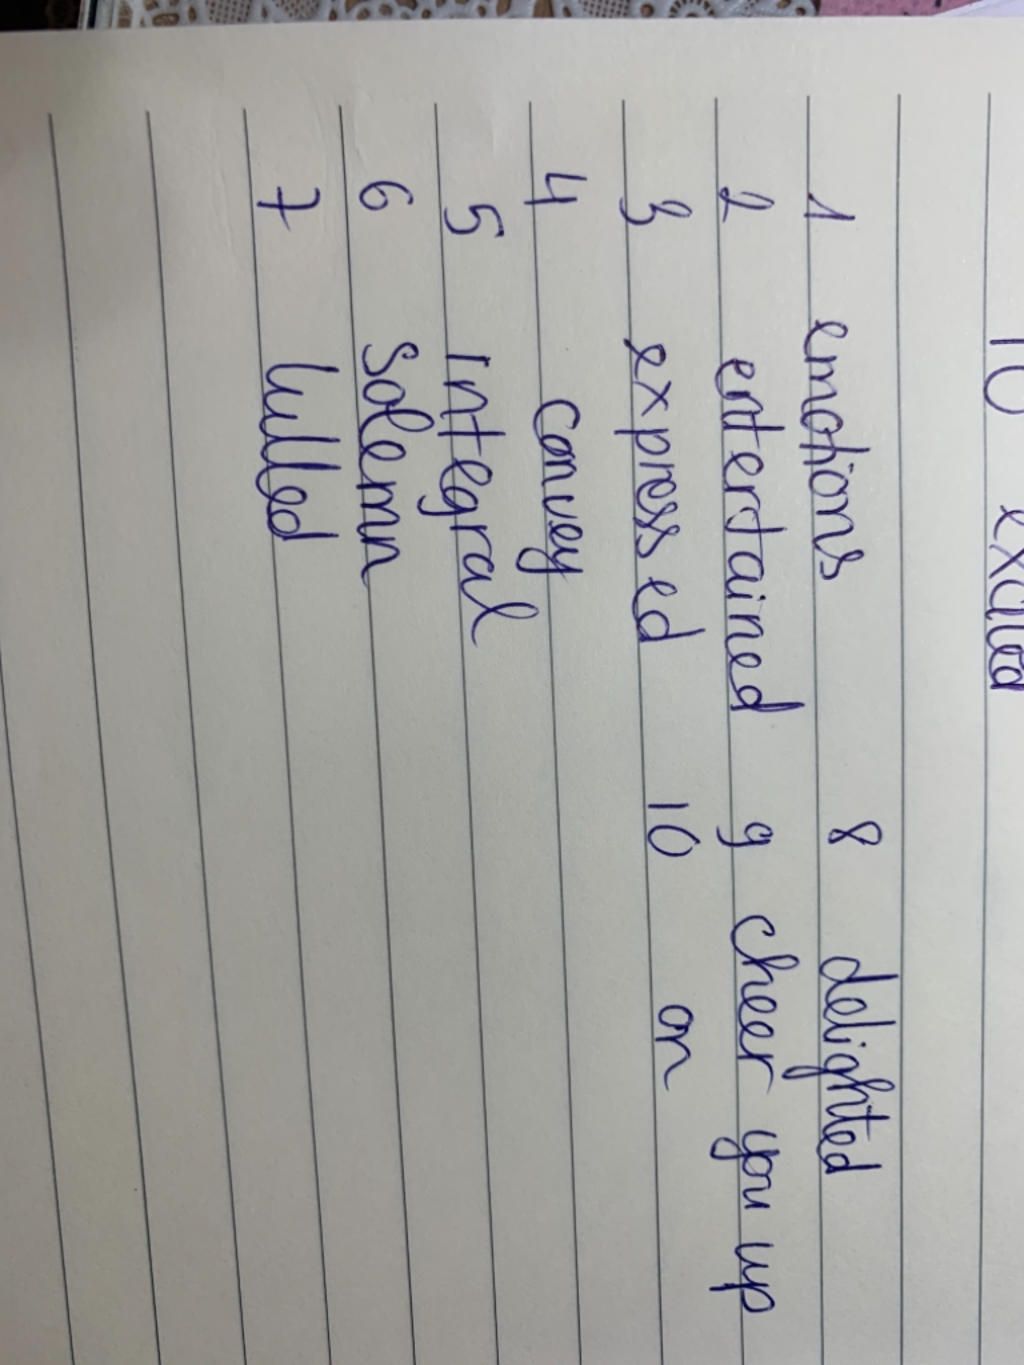 10 excited
1 emotions 8 delighted
2 entertained 9 cheer you up
3 expressed 10 on
4 convey
5 integral
6 solemn
7 lulled